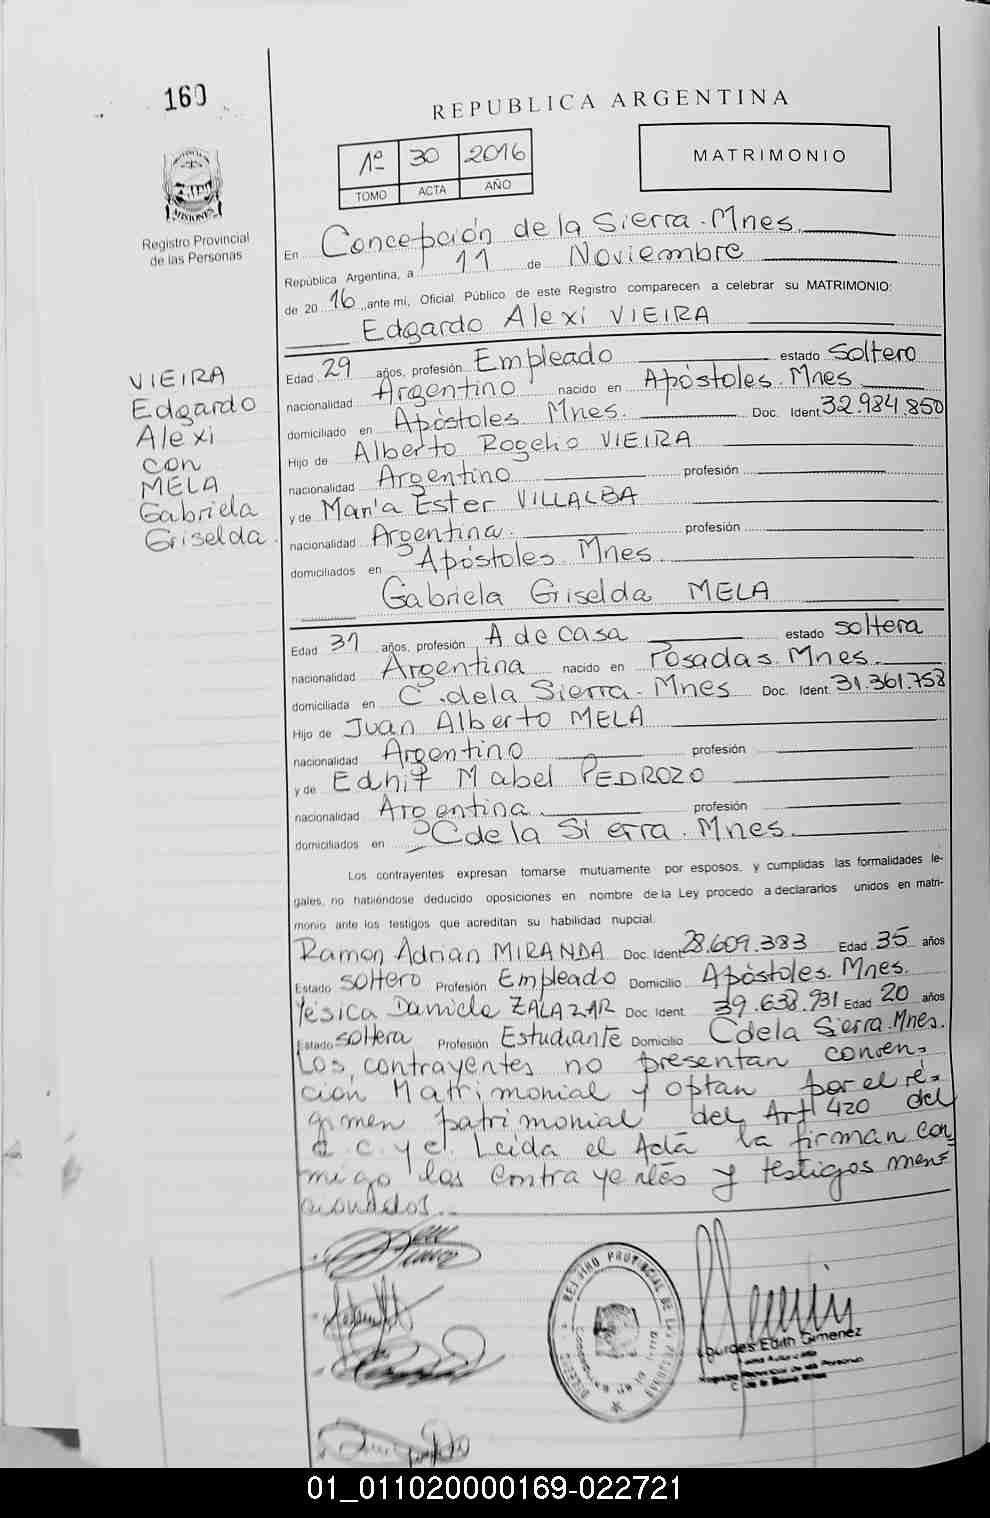 160
REPUBLICA ARGENTINA
1º 30 2016
TOMO ACTA AÑO
MATRIMONIO
MISIONES
Registro Provincial
de las Personas
En Concepción de la Sierra. Mnes.
República Argentina, a 11 de Noviembre
de 2016, ante mi, Oficial Público de este Registro comparecen a celebrar su MATRIMONIO:
Edgardo Alexi VIEIRA
VIEIRA
Edgardo
Alexi
con
MELA
Gabriela
Griselda.
Edad 29 años, profesión Empleado estado soltero
nacionalidad Argentino nacido en Apóstoles. Mnes
domiciliado en Apóstoles Mnes. Doc. Ident. 32.984.850
Hijo de Alberto Rogelio VIEIRA
nacionalidad Argentino profesión
y de María Ester VILLALBA
nacionalidad Argentina. profesión
domiciliados en Apóstoles Mnes.
Gabriela Griselda MELA
Edad 31 años, profesión A de casa estado soltera
nacionalidad Argentina nacido en Posadas. Mnes.
domiciliada en C. de la Sierra. Mnes Doc. Ident. 31.361.758
Hijo de Juan Alberto MELA
nacionalidad Argentino profesión
y de Edhit Mabel PEDROZO
nacionalidad Argentina. profesión
domiciliados en C de la Sierra. Mnes.
Los contrayentes expresan tomarse mutuamente por esposos, y cumplidas las formalidades le-
gales, no habiéndose deducido oposiciones en nombre de la Ley procedo a declararlos unidos en matri-
monio ante los testigos que acreditan su habilidad nupcial.
Ramon Adrian MIRANDA Doc. Ident. 28.609.383 Edad 35 años
Estado soltero Profesión Empleado Domicilio Apóstoles. Mnes.
Yesica Daniela ZALAZAR Doc. Ident. 39.638.931 Edad 20 años
Estado soltera Profesión Estudiante Domicilio C de la Sierra. Mnes.
Los contrayentes no presentan conven-
ción Matrimonial y optan por el ré-
gimen patrimonial del Art 420 del
C. y C. Leida el Acta la firman con
migo los contrayentes y testigos men=
cionados.
REGISTRO PROVINCIAL DE LAS PERSONAS
Lourdes Edith Gimenez
Registro Provincial de las Personas
01_011020000169-022721